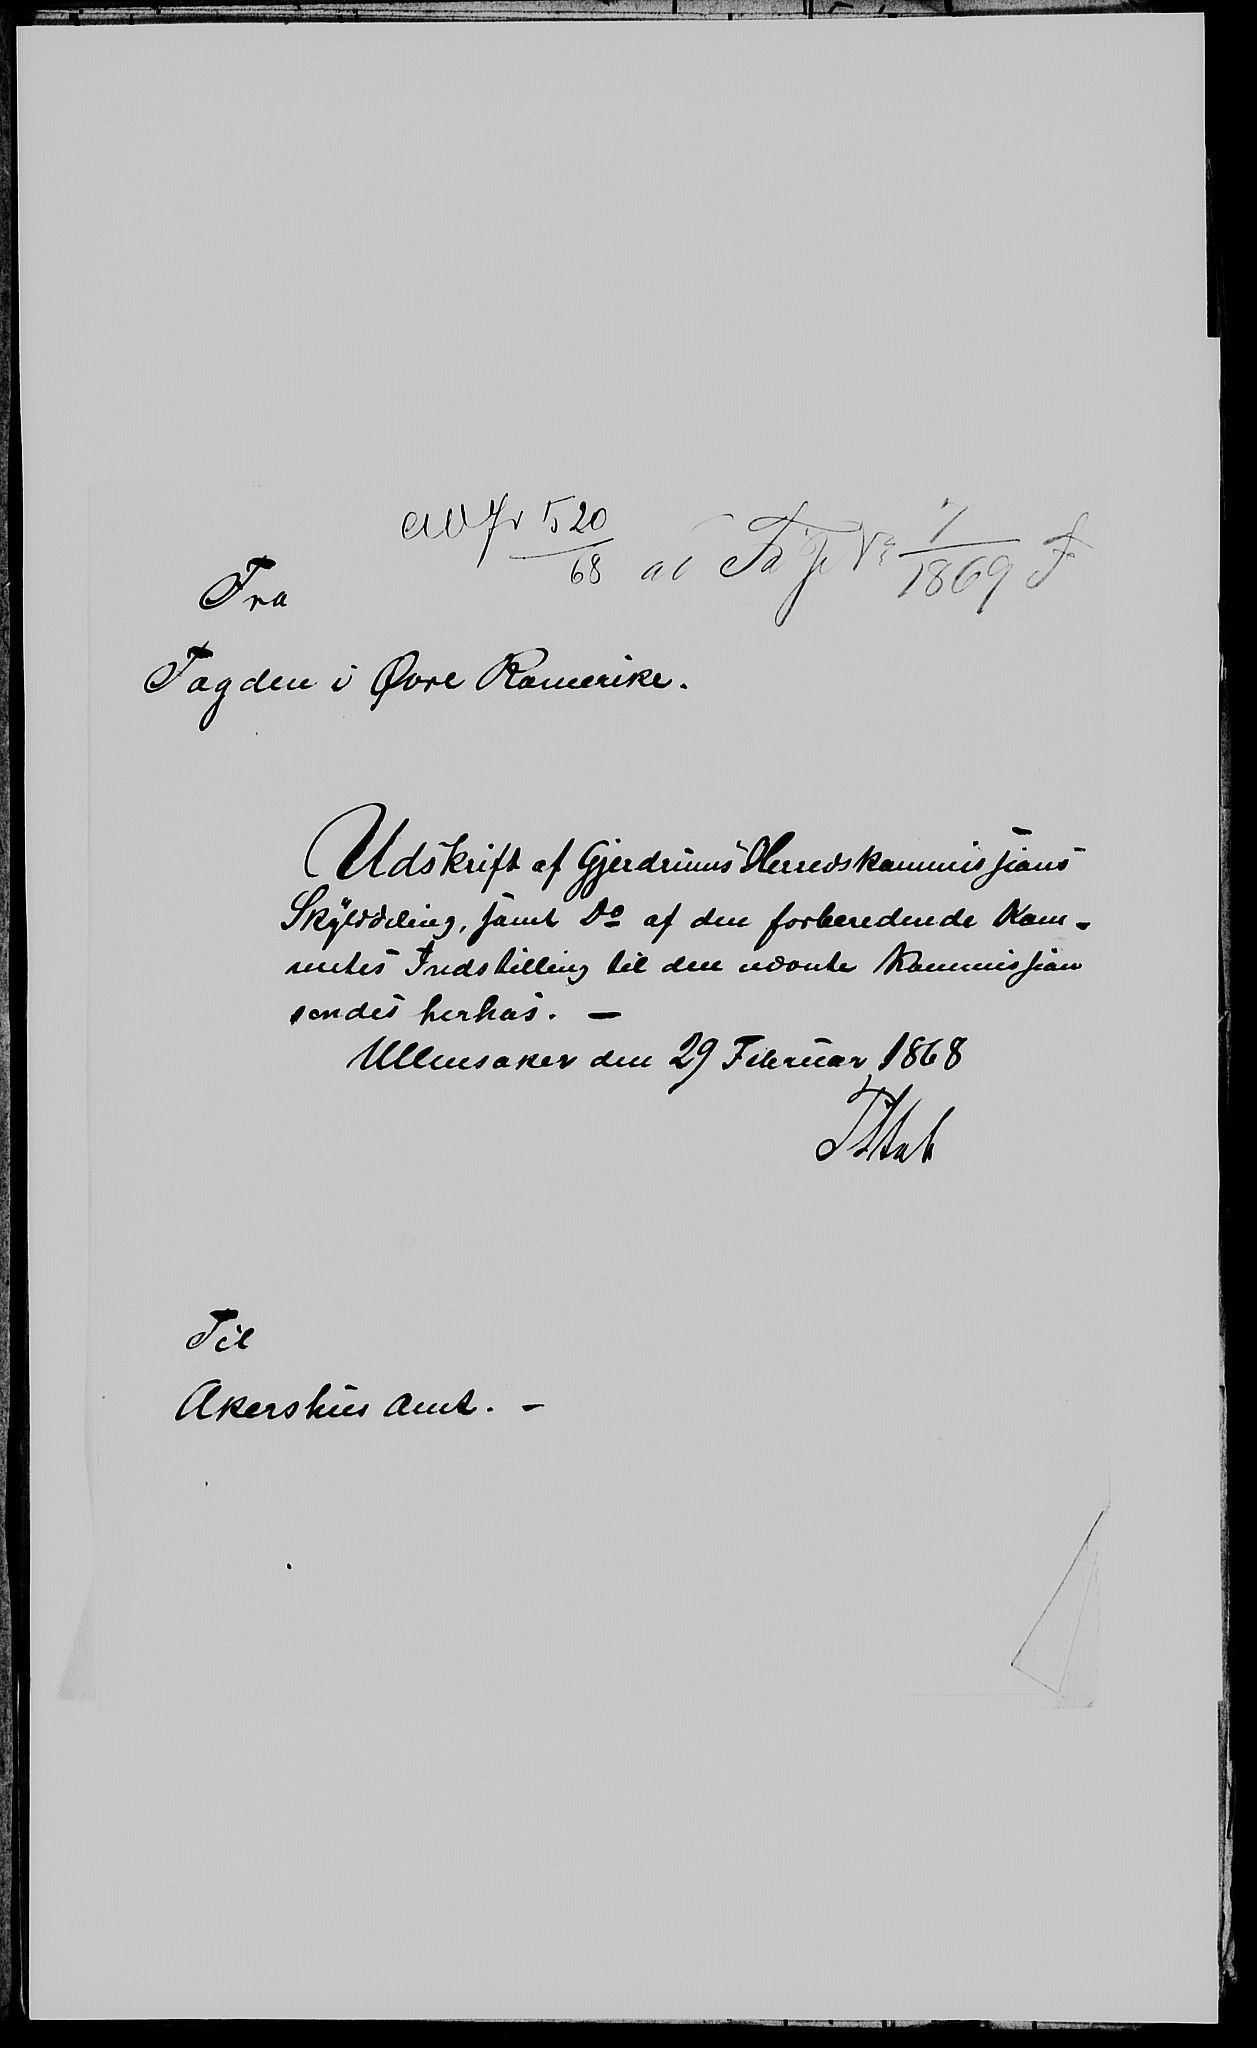 ad Jr 520/68 ad Fd J No 7/1869 F
Fra
Fogden i Øvre Romerike.
Udskrift af Gjerdrums Herredskommissions
Skylddeling, samt Do af den forberedende Kom-
mites Indstilling til den nævnte Kommission
sendes herhos. —
Ullensaker den 29 Februar 1868
Til
Akershus Amt. –